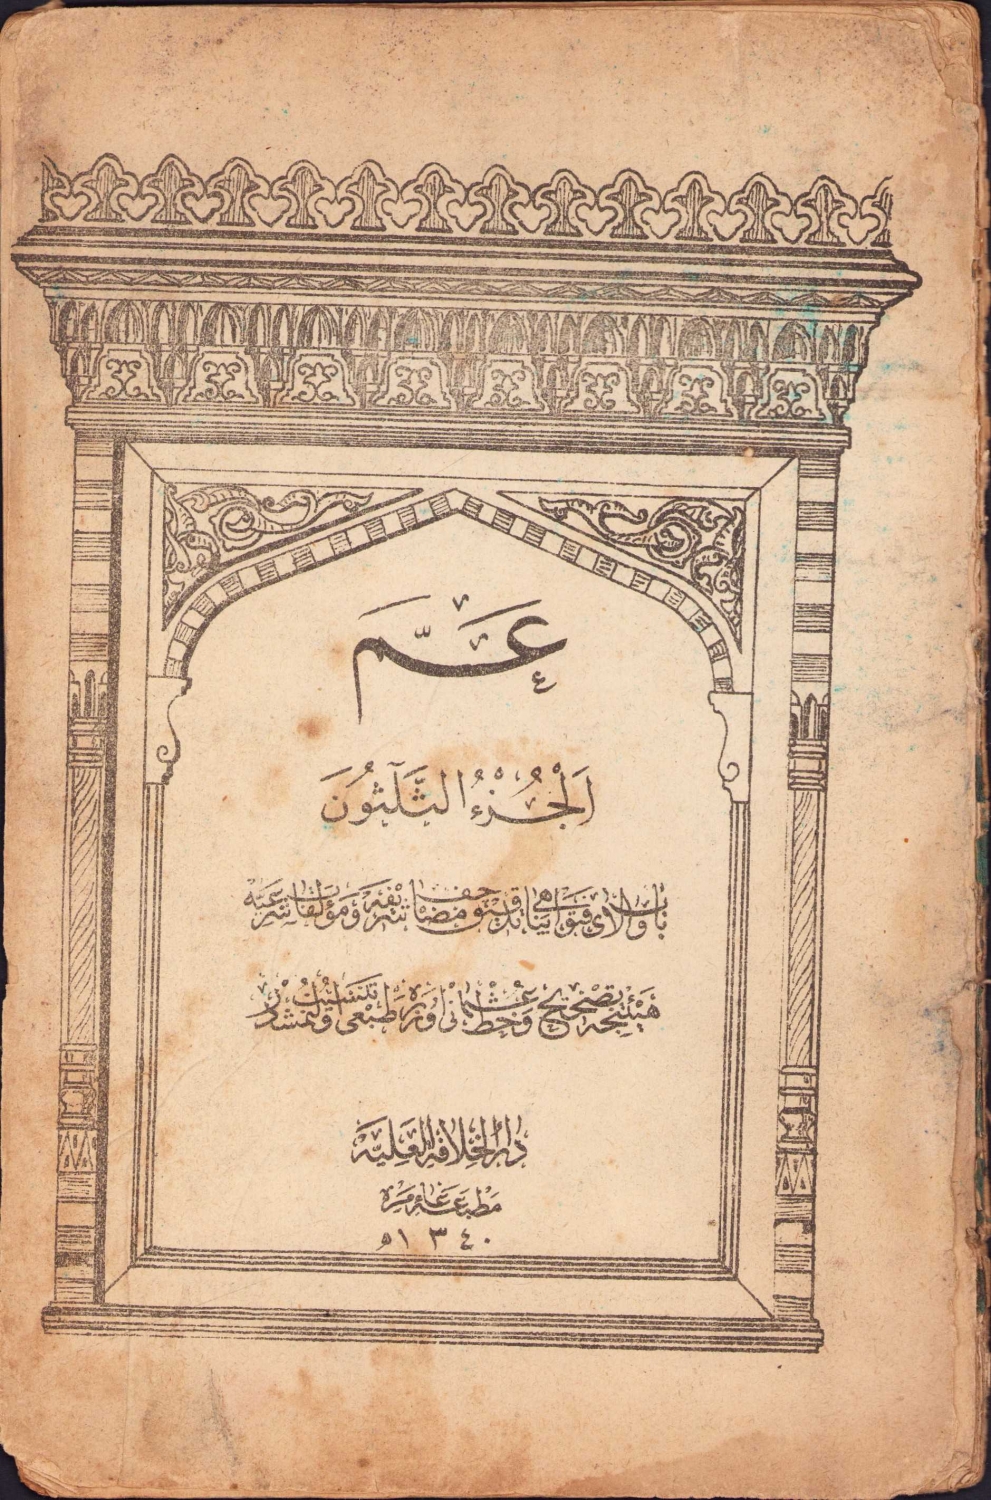 عَمَّ
اَلْجُزْءُ الثَّلٰثُونَ
باب والای فتواپناهی تدقیق مصاحف شریفه و مؤلفات شرعیه
هیئتنجه تصحیح و خط عثمانی اوزره طبعی اولنمشدر
دار الخلافة العلیه
مطبعهٔ عامره
١٣٤٠ه